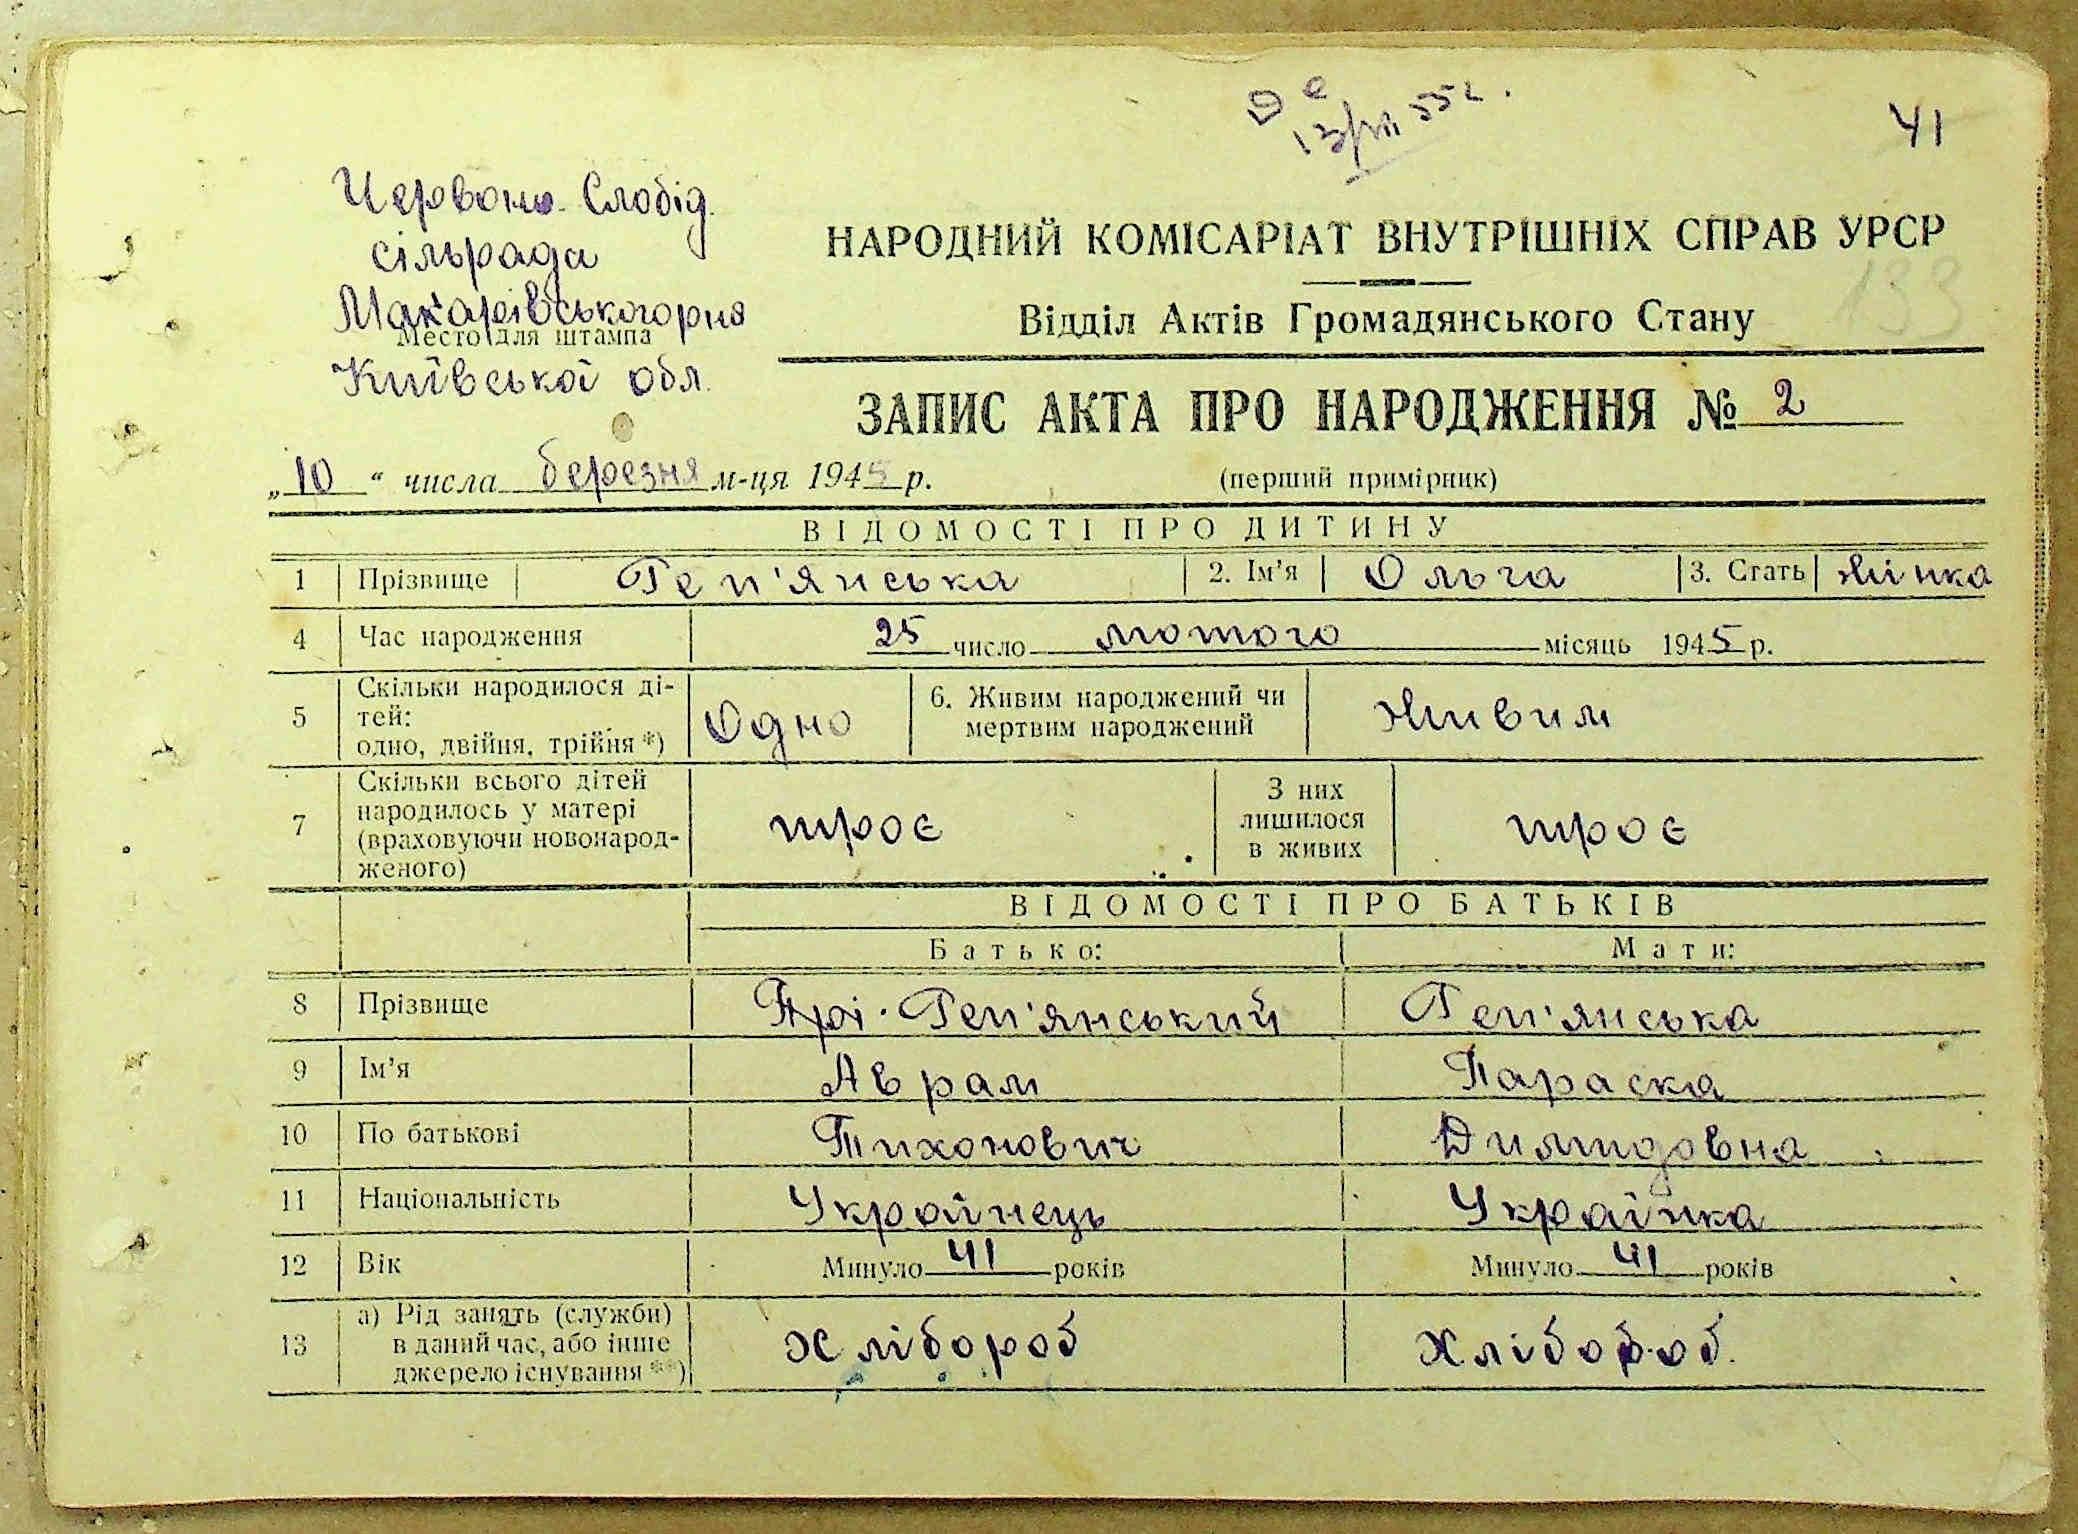 13/VII 55 г.
41
Червоно-Слобід.
сільрада
Макарівського р-на
Место для штампа
Київської обл.
НАРОДНИЙ КОМІСАРІАТ ВНУТРІШНІХ СПРАВ УРСР
133
Відділ Актів Громадянського Стану
ЗАПИС АКТА ПРО НАРОДЖЕННЯ № 2
„10“ числа березня м-ця 1945 р. (перший примірник)
ВІДОМОСТІ ПРО ДИТИНУ
1 Прізвище Геп'янська 2. Ім'я Ольга 3. Стать жінка
4 Час народження 25 число лютого місяць 1945 р.
5 Скільки народилося ді-
тей:
одно, двійня, трійня *) Одно 6. Живим народжений чи
мертвим народжений Живим
7 Скільки всього дітей
народилось у матері
(враховуючи новонарод-
женого) троє З них
лишилося
в живих троє
ВІДОМОСТІ ПРО БАТЬКІВ
Батько: Мати:
8 Прізвище Геп'янський Геп'янська
9 Ім'я Аврам Параска
10 По батькові Тихонович Димидовна
11 Національність Українець Українка
12 Вік Минуло 41 років Минуло 41 років
13 а) Рід занять (служби)
в даний час, або інше
джерело існування **) Хлібороб Хлібороб.